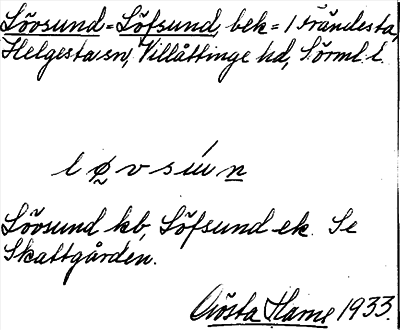 Lövsund = Löfsund, bek = / Frändesta,
Helgesta sn, Villåttinge hd, Sörml. l.
l ø v s ú n
Lövsund kb, Löfsund ek. Se
Skattgården.
Gösta Hams 1933.